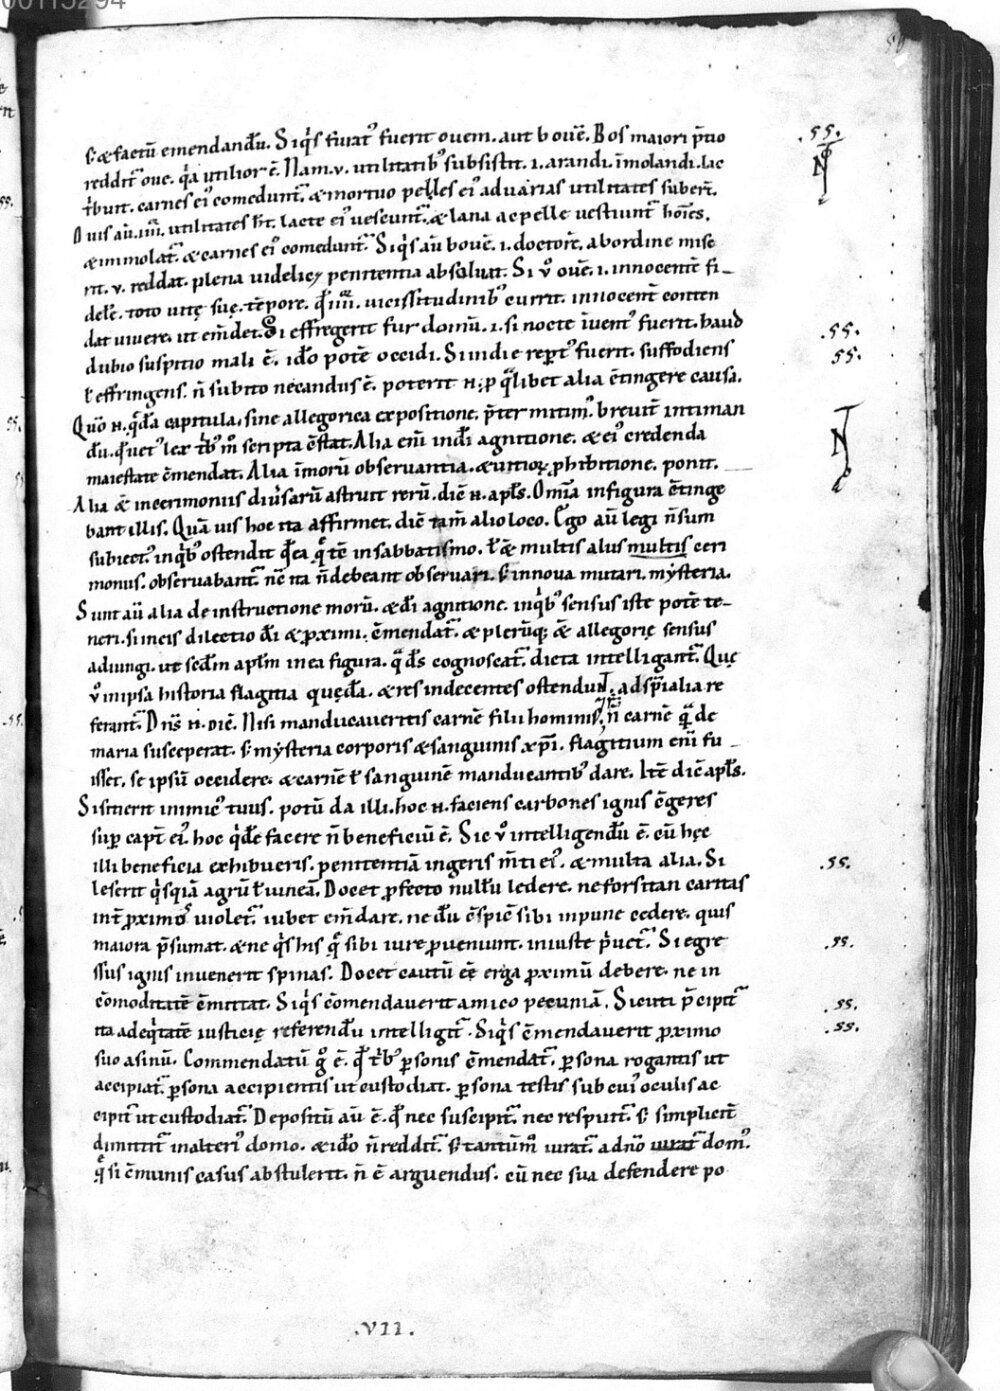 00115294
50
s; & factū emendandū. Siq's furat' fuerit ouem. aut bouē. Bos maiori p̄tio
reddit' oue. q'a utilior ē. Nam .v. utilitatib' subsistit. i. arandi. īmolandi. lac
t'buit. carnes ei' comedunt'. & mortuo pelles ei' aduarias utilitates suber̄t.
Ouis aū .iiii. utilitates h̄t. lacte ei' uescunt'. & lana ac pelle uestiunt' hoīes.
& immolat'. & carnes ei' comedunt'. Siq's aū bouē. i. doctorē. ab ordine mise
rit. v. reddat. plena uidelicz penitentia absoluat. Si v° ouē. i. innocentē fi-
delē. toto uitę suę tēpore. qd̄ iiii. uicissitudinib' currit. innocent̄ conten
dat uiuere. ut em̄det. Si effregerit fur domū. i. si nocte īuent' fuerit. haud
dubio suspitio mali ē. idō potē occidi. Si in die repert' fuerit. suffodiens
ł effringens. n̄ subito necandus ē. poterit n. p q̄libet alia c̄tingere causa.
Quō n. q̄dā capitula. sine allegorica expositione. p̄termitim'. breuit̄ intiman
dū. qd̄ uet' lex t'b' m° scripta c̄stat. Alia eni in dī agnitione. & ei' credenda
maiestate c̄mendat. Alia ī morū obseruantia. & uitioꝝ phibitione. ponit.
Alia & in cerimoniis diūsarū astruit rerū. dic̄ n. apłs. Om̄ia in figura c̄tinge
bant illis. Quā uis hoc ita affirmet. dic̄ tam̄ alio loco. Ego aū legi n̄ sum
subiect'. in q'b' ostendit qd̄ ea q̄ tē in sabbatismo. ł & multis aliis multis ceri
moniis. obseruabant'. nc̄ ita n̄ debeant obseruari. s; in noua mutari. mysteria.
Sunt aū alia de instructione morū. & dī agnitione. in q'b' sensus iste potē te-
neri. si in eis dilectio dī & p̱ximi. c̄mendat'. & plerūq; & allegorię sensus
adiungi. ut sedm̄ apłm in ea figura. q̄ ds̄ cognoscat'. dicta intelligant'. Quę
v° in ipsa historia flagitia quędā. & res indecentes ostendunt. ad sp̄ialia re
ferant'. Dn̄s n. dic̄. Nisi manducaueritis carnē filii hominis. n̄ carnē q̄ de
maria susceperat. s; mysteria corporis & sanguinis xp̄i. flagitium eni fu-
isset. se ipsū occidere. & carnē ł sanguinē manducantib' dare. Itē dic̄ apłs.
Si sitierit inimic' tuus. potū da illi. hoc n. faciens carbones ignis c̄geres
sup̱ capt̄ ei'. hoc q'dē facere n̄ beneficiū ē. Sic v° intelligendū ē. cū hęc
illi beneficia exhibueris. penitentiā ingeris m̄ti ei'. & multa alia. Si
leserit q'sq̄ā agrū ł uineā. Docet p̱fecto nullū ledere. ne forsitan caritas
int̄ p̱ximos uiolet'. iubet em̄dare. ne dū c̄spic̄ sibi inpune cedere. quis
maiora p̄sumat. & ne q's his q̄ sibi iure p̱ueniunt. iniuste p̄uet'. Si egre
ssus ignis inuenerit spinas. Docet cautū ēē erga p̱ximū debere. ne in
c̄moditatē c̄mittat. Siq's c̄mendauerit amico pecuniā. Sicuti p̄cipit'
ita adeq̄tatē iusticię referendū intelligit'. Siq's c̄mendauerit p̱ximo
suo asinū. Commendatū g° ē. qd̄ t'b' p̱sonis c̄mendat'. p̱sona rogantis ut
accipiat'. p̱sona accipientis ut custodiat. p̱sona testis sub cui' oculis ac
cipit' ut custodiat'. Depositū aū ē. qd̄ nec suscipit'. nec respuit'. s; simplicit̄
dimittit' in alteri' domo. & idō n̄ reddit'. s; tantūm° iurat' a dn̄o iurat' dom'.
q̄ si c̄munis casus abstulerit. n̄ ē arguendus. cū nec sua defendere po
.ss.
.ss.
.ss.
.ss.
.ss.
.ss.
.ss.
.VII.